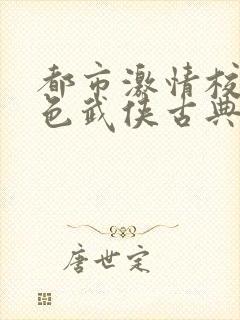 都市激情校
色武侠古典
唐世定